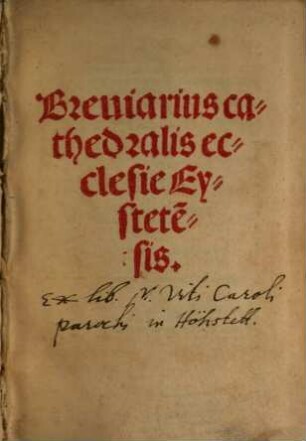 Breuiarius ca-
thedralis ec-
clesie Ey-
stetē-
sis.
Ex lib. Viti Caroli
parochi in Höhstett.